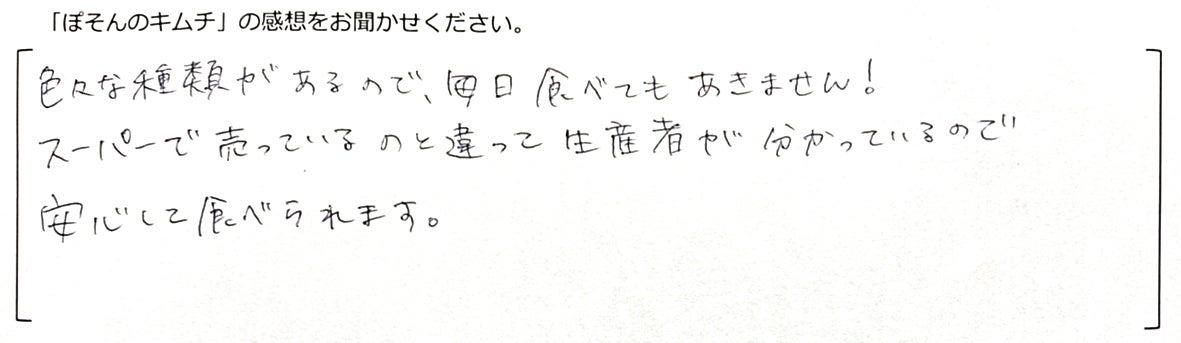 「ぽそんのキムチ」の感想をお聞かせください。
色々な種類があるので、毎日食べてもあきません!
スーパーで売っているのと違って生産者が分かっているので
安心して食べられます。